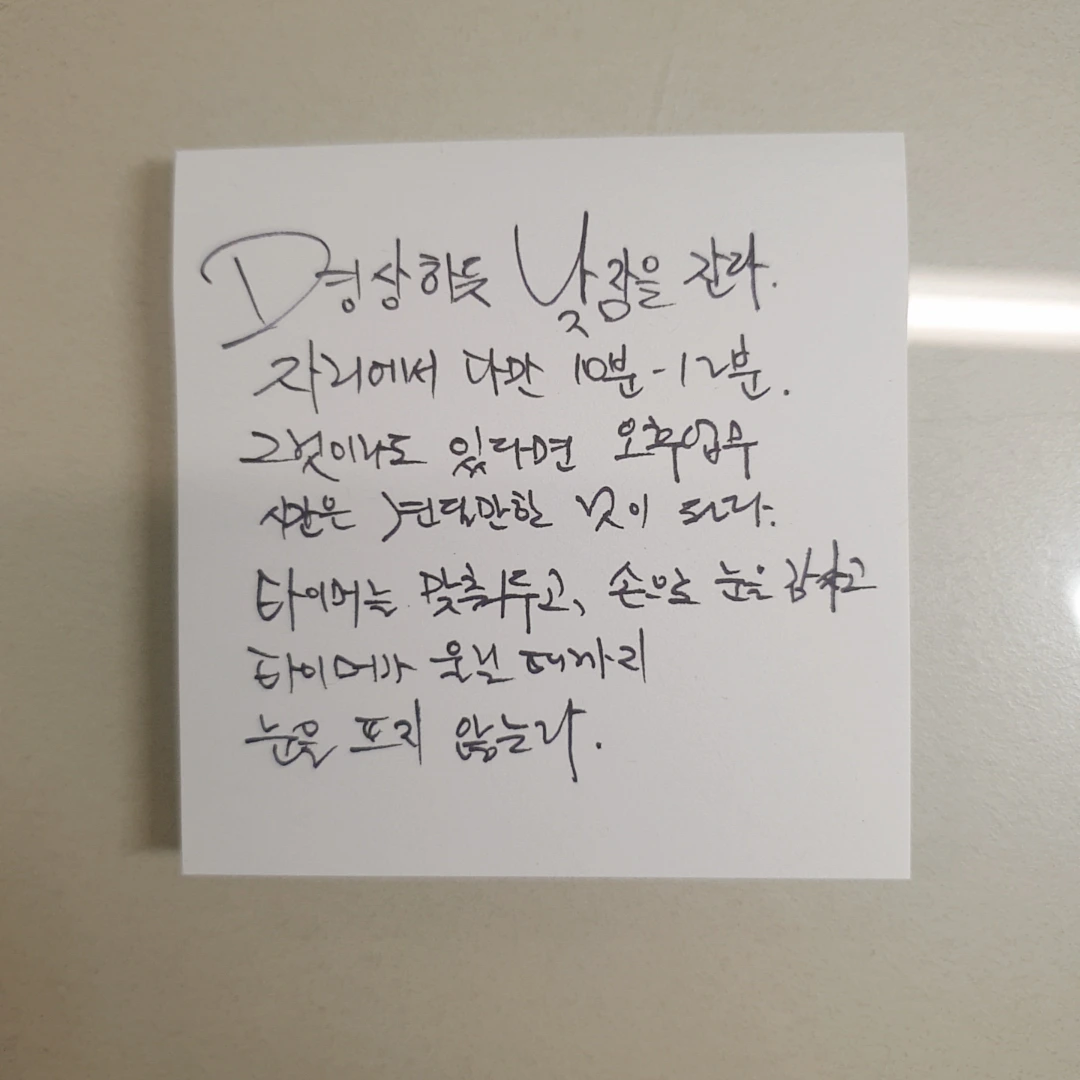 명상하듯 낮잠을 잔다.
자리에서 다만 10분-12분.
그것이나도 있다면 오후업무
시간은 견딜만한 것이 되다.
타이머를 맞춰두고, 손으로 눈을 감싸고
타이머가 울릴 때까지
눈을 뜨지 않는다.